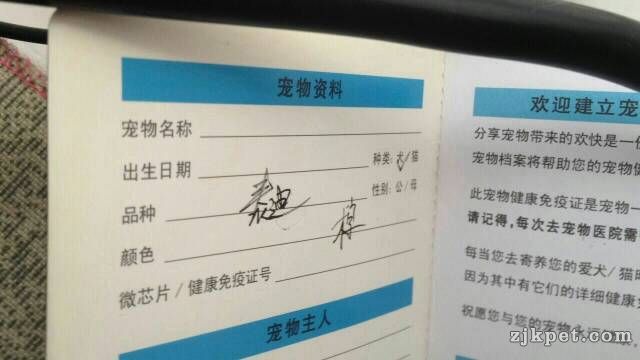 宠物资料
宠物名称
出生日期 种类:犬/猫
品种 泰迪 性别:公/母
颜色 棕
微芯片/健康免疫证号
宠物主人
欢迎建立宠
分享宠物带来的欢快是一
宠物档案将帮助您的宠物
此宠物健康免疫证是宠物一
请记得,每次去宠物医院需
每当您去寄养您的爱犬/猫
因为其中有它们的详细健康
祝愿您与您的宠物
zjkpet.com